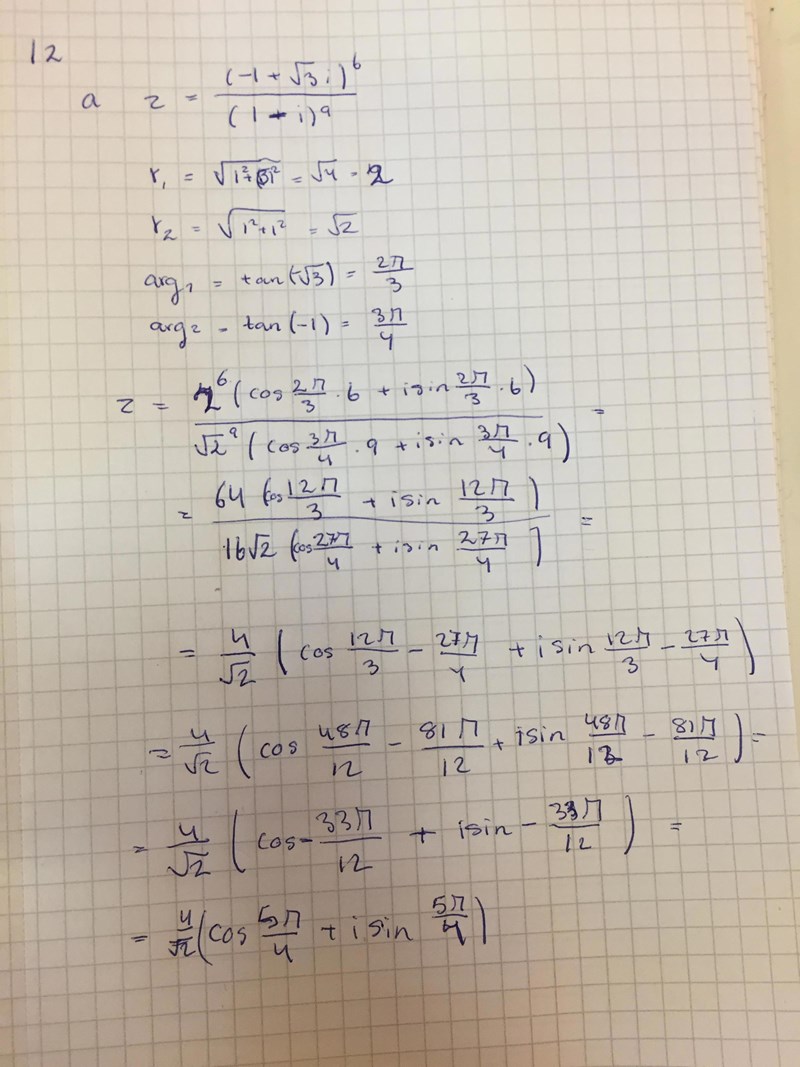 12
a z = (-1 + √3 i)^6 / (1 - i)^9
r₁ = √(1²+√3²) = √4 = 2
r₂ = √(1²+1²) = √2
arg₁ = tan(-√3) = 2π/3
arg₂ = tan(-1) = 3π/4
z = 2^6 (cos 2π/3 · 6 + i sin 2π/3 · 6) / √2^9 (cos 3π/4 · 9 + i sin 3π/4 · 9) =
= 64 (cos 12π/3 + i sin 12π/3) / 16√2 (cos 27π/4 + i sin 27π/4) =
= 4/√2 (cos 12π/3 - 27π/4 + i sin 12π/3 - 27π/4)
= 4/√2 (cos 48π/12 - 81π/12 + i sin 48π/12 - 81π/12) =
= 4/√2 (cos - 33π/12 + i sin - 33π/12) =
= 4/√2 (cos 5π/4 + i sin 5π/4)